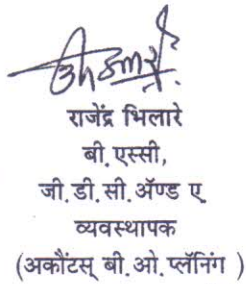 राजेंद्र भिलारे
बी. एस्सी,
जी. डी. सी. ॲण्ड ए
व्यवस्थापक
(अकौंटस् बी. ओ. प्लॅनिंग )